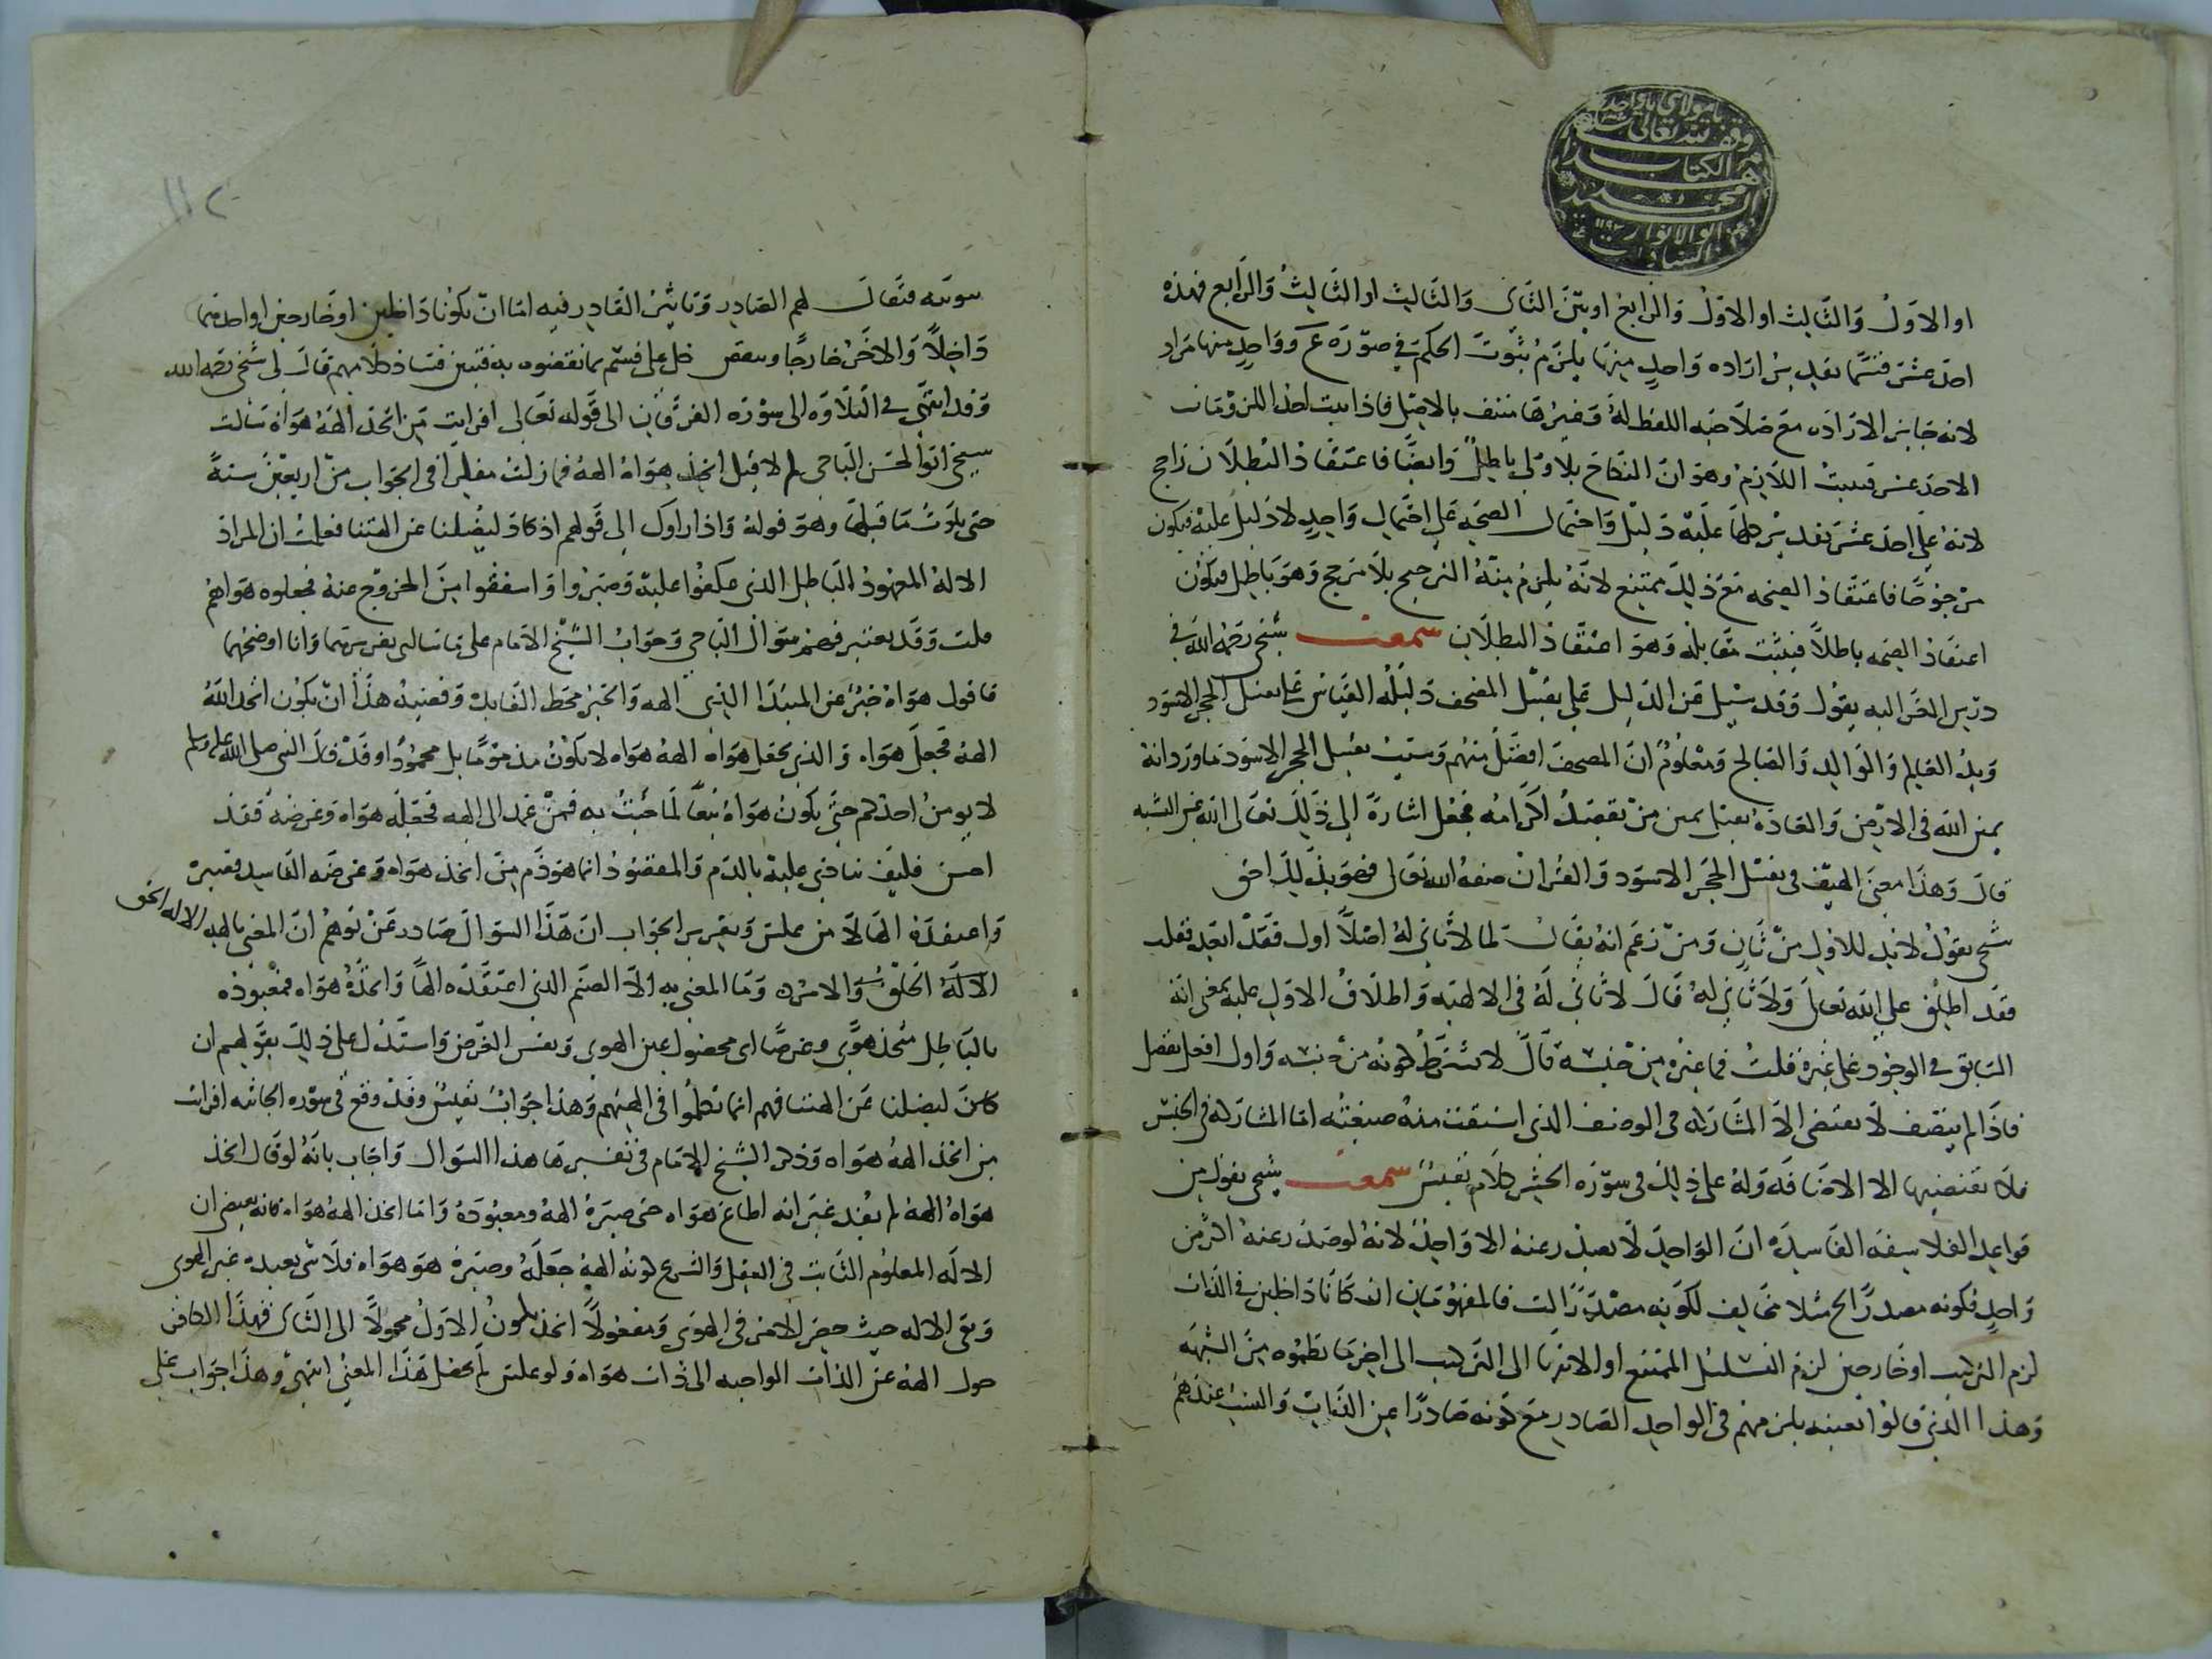 يا مولاي يا واحد
وقف لله تعالى
هذا الكتاب
محمد
ابو الانوار ١١٩٢
السادات
او الاول والثالث او الاول والرابع او بين الثانى والثالث او الثالث والرابع فهذه
احد عشر قسما بتقدير ارادة واحد منها يلزم ثبوت الحكم في صورة ع وواحد منها مراد
لانه جايز الارادة مع صلاحية اللفظ له وغيرها منتف بالاصل فاذا ثبت احد
الاحد عشر فيثبت اللازم وهو ان النكاح بلا ولى باطل وايضا فاعتقاد البطلان راجح
لانه على احد عشر تقدير كلها عليه دليل واحتمال الصحة على احتمال واحد لا دليل عليه فيكون
مرجوحا فاعتقاد الصحة مع ذلك ممتنع لانه يلزم منه الترجيح بلا مرجح وهو باطل فيكون
اعتقاد الصحة باطلا فيثبت مقابله وهو اعتقاد البطلان سمعت شيخي رحمه الله في
درس الغزالية يقول وقد سئل عن الدليل على تقبيل المصحف دليله القياس على تقبيل الحجر الاسود
ويد العالم والوالد والصالح ومعلوم ان المصحف افضل منهم وسبب تقبيل الحجر الاسود ما ورد انه
يمين الله في الارض والعادة تقبيل يمين من تقصد اكرامه فجعل اشارة الى ذلك تعالى الله عن الشبه
قال وهذا معنى لطيف في تقبيل الحجر الاسود والقران صفة الله تعالى فهو بذلك احق
شيخي يقول لا بد للاول من ثان ومن زعم انه يقال لما لا ثاني له اصلا اول فقد ابعد فقلت
فقد اطلق على الله تعالى ولا ثاني له قال لا ثاني له في الالهية واطلاق الاول عليه بمعنى انه
السابق في الوجود على غيره قلت فما غيره من جنسه قال لا يشترط كونه من جنسه واول افعل تفضل
فاذا لم ينصف لا يقتضى الا المشاركة في الوصف الذي اشتقت منه صيغته اما المشاركة في الجنس
فلا يقتضيها الا الاضافة وله على ذلك في سورة الحشر كلام نفيس سمعت شيخي يقول من
قواعد الفلاسفة الفاسدة ان الواحد لا يصدر عنه الا واحد لانه لو صدر عنه اكثر من
واحد فكونه مصدرا لح مثلا مخالف لكونه مصدرا لب فالمفهومان ان كانا داخلين في الذات
لزم التركيب او خارجين لزم التسلسل الممتنع او الانتها الى التركيب الى اخر ما نظموه من الشبهة
وهذا الذي قالوا بعينه يلزمهم في الواحد الصادر مع كونه صادرا عن الذات والنسب عندهم
١١٢
فيقال لهم الصادر وتاثير القادر فيه اما ان يكونا داخلين او خارجين او احدهما
داخلا والاخر خارجا وينقض كل على قسم بما نقضوه به فتبين فساد كلامهم قال لى شيخي رحمه الله
وقد انتهى في التلاوة الى سورة الفرقان الى قوله تعالى افرايت من اتخذ الهه هواه سالت
شيخي ابو الحسن الباجي لم لا قيل اتخذ هواه الهه فما زلت مفكرا في الجواب من اربعين سنة
حتى تلوت ما قبلها وهو قوله واذا راوك الى قولهم ان كاد ليضلنا عن الهتنا فعلمت ان المراد
الاله المعهود الباطل الذي عكفوا عليه وصبروا واشفقوا من الخروج عنه فجعلوه هواهم
قلت وقد يعسر فهم سؤال الباجي وجواب الشيخ الامام على ما سالني تقريرهما وانا اوضحهما
فاقول هواه خبر عن المبتدا الذي الهه والخبر محط الفايدة وقضية هذا ان يكون اتخذ الله
الهه فجعل هواه والذي يجعل هواه الهه هواه لا يكون مذموما بل محمودا وقد قال النبي صلى الله عليه وسلم
لا يومن احدكم حتى يكون هواه تبعا لما جئت به فمن عمد الى الهه فجعله هواه وغرضه فقد
احسن فكيف ينادى عليه بالذم والمقصود انما هو ذم من اتخذ هواه وغرضه الفاسد
واعتقده الها لا من علمت وتقرير الجواب ان هذا السوال صادر عمن توهم ان المعنى بالهه الاله الحق
الاله الخلق والامر وما المعنى به الا الصنم الذي اعتقده الها واتخذه هواه فمعبوده
بالباطل متخذ هوى وغرضا اى مجعول عين الهوى ونفس الغرض واستدل على ذلك بقولهم ان
كاد ليضلنا عن الهتنا فهم انما تكلموا في الهتهم وهذا جواب نفيس وقد وقع في سورة الجاثية افرايت
من اتخذ الهه هواه وذكر الشيخ الامام في تفسيرها هذا السوال واجاب بانه لو قال اتخذ
هواه الهه لم يفد غير انه اطاع هواه حتى صيره الهه ومعبوده واما اتخذ الهه هواه فانه يفيد ان
الاله المعلوم الثابت في العقل والشرع كونه الهه جعله وصيره هو هواه فلا شى يعبده غير الهوى
ونفى الاله حيث حصر الامر في الهوى ومفعولا اتخذ يكون الاول محولا الى الثانى فهذا الكافر
حول الهه عن الذات الواجبة الى ذات هواه ولو عكس لم يحصل هذا المعنى انتهى وهذا جواب على